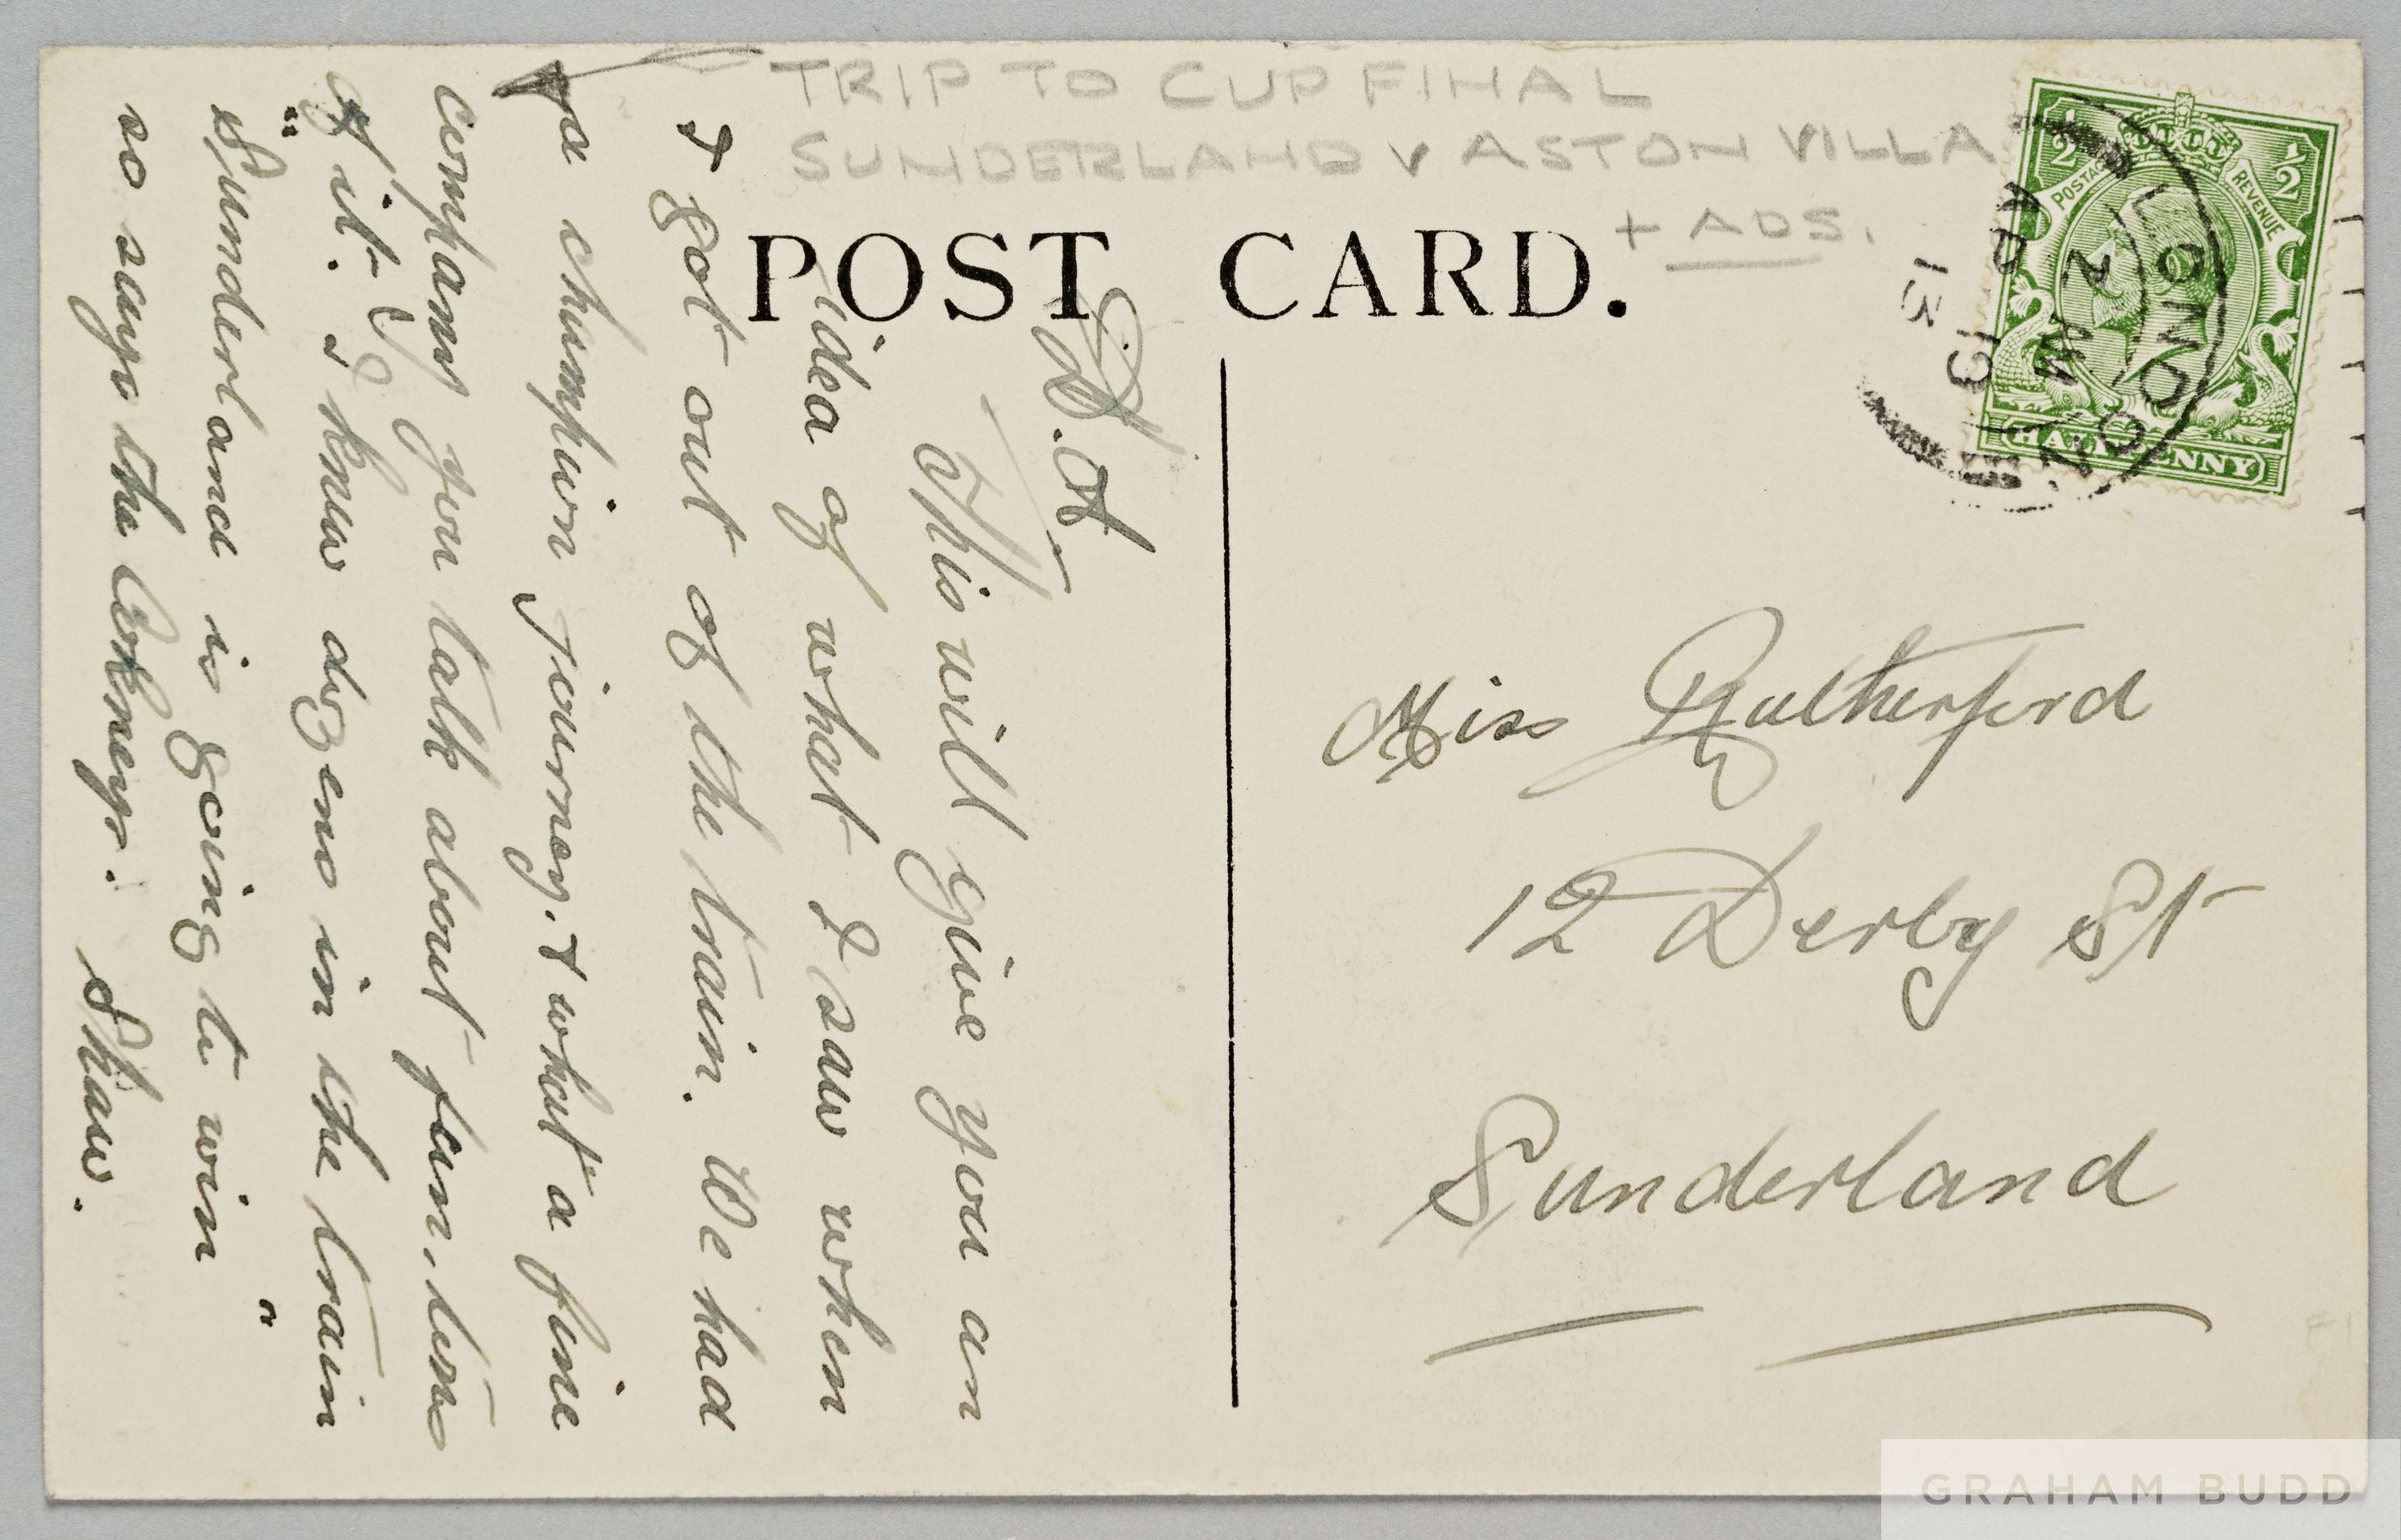 TRIP TO CUP FINAL
SUNDERLAND V ASTON VILLA
+ ADS.
POST CARD.
½ ½
POSTAGE REVENUE
HALFPENNY
LONDON
2
AP 19
13
D. A.
This will give you an
idea of what I saw when
I got out of the train. We had
a champion journey. & what a fine
company you talk about fun, tons
of it. I knew dozens in the train
"Sunderland is going to win"
so says the Cokneys. Shaw.
Miss Rutherford
12 Derby St
Sunderland
GRAHAM BUDD